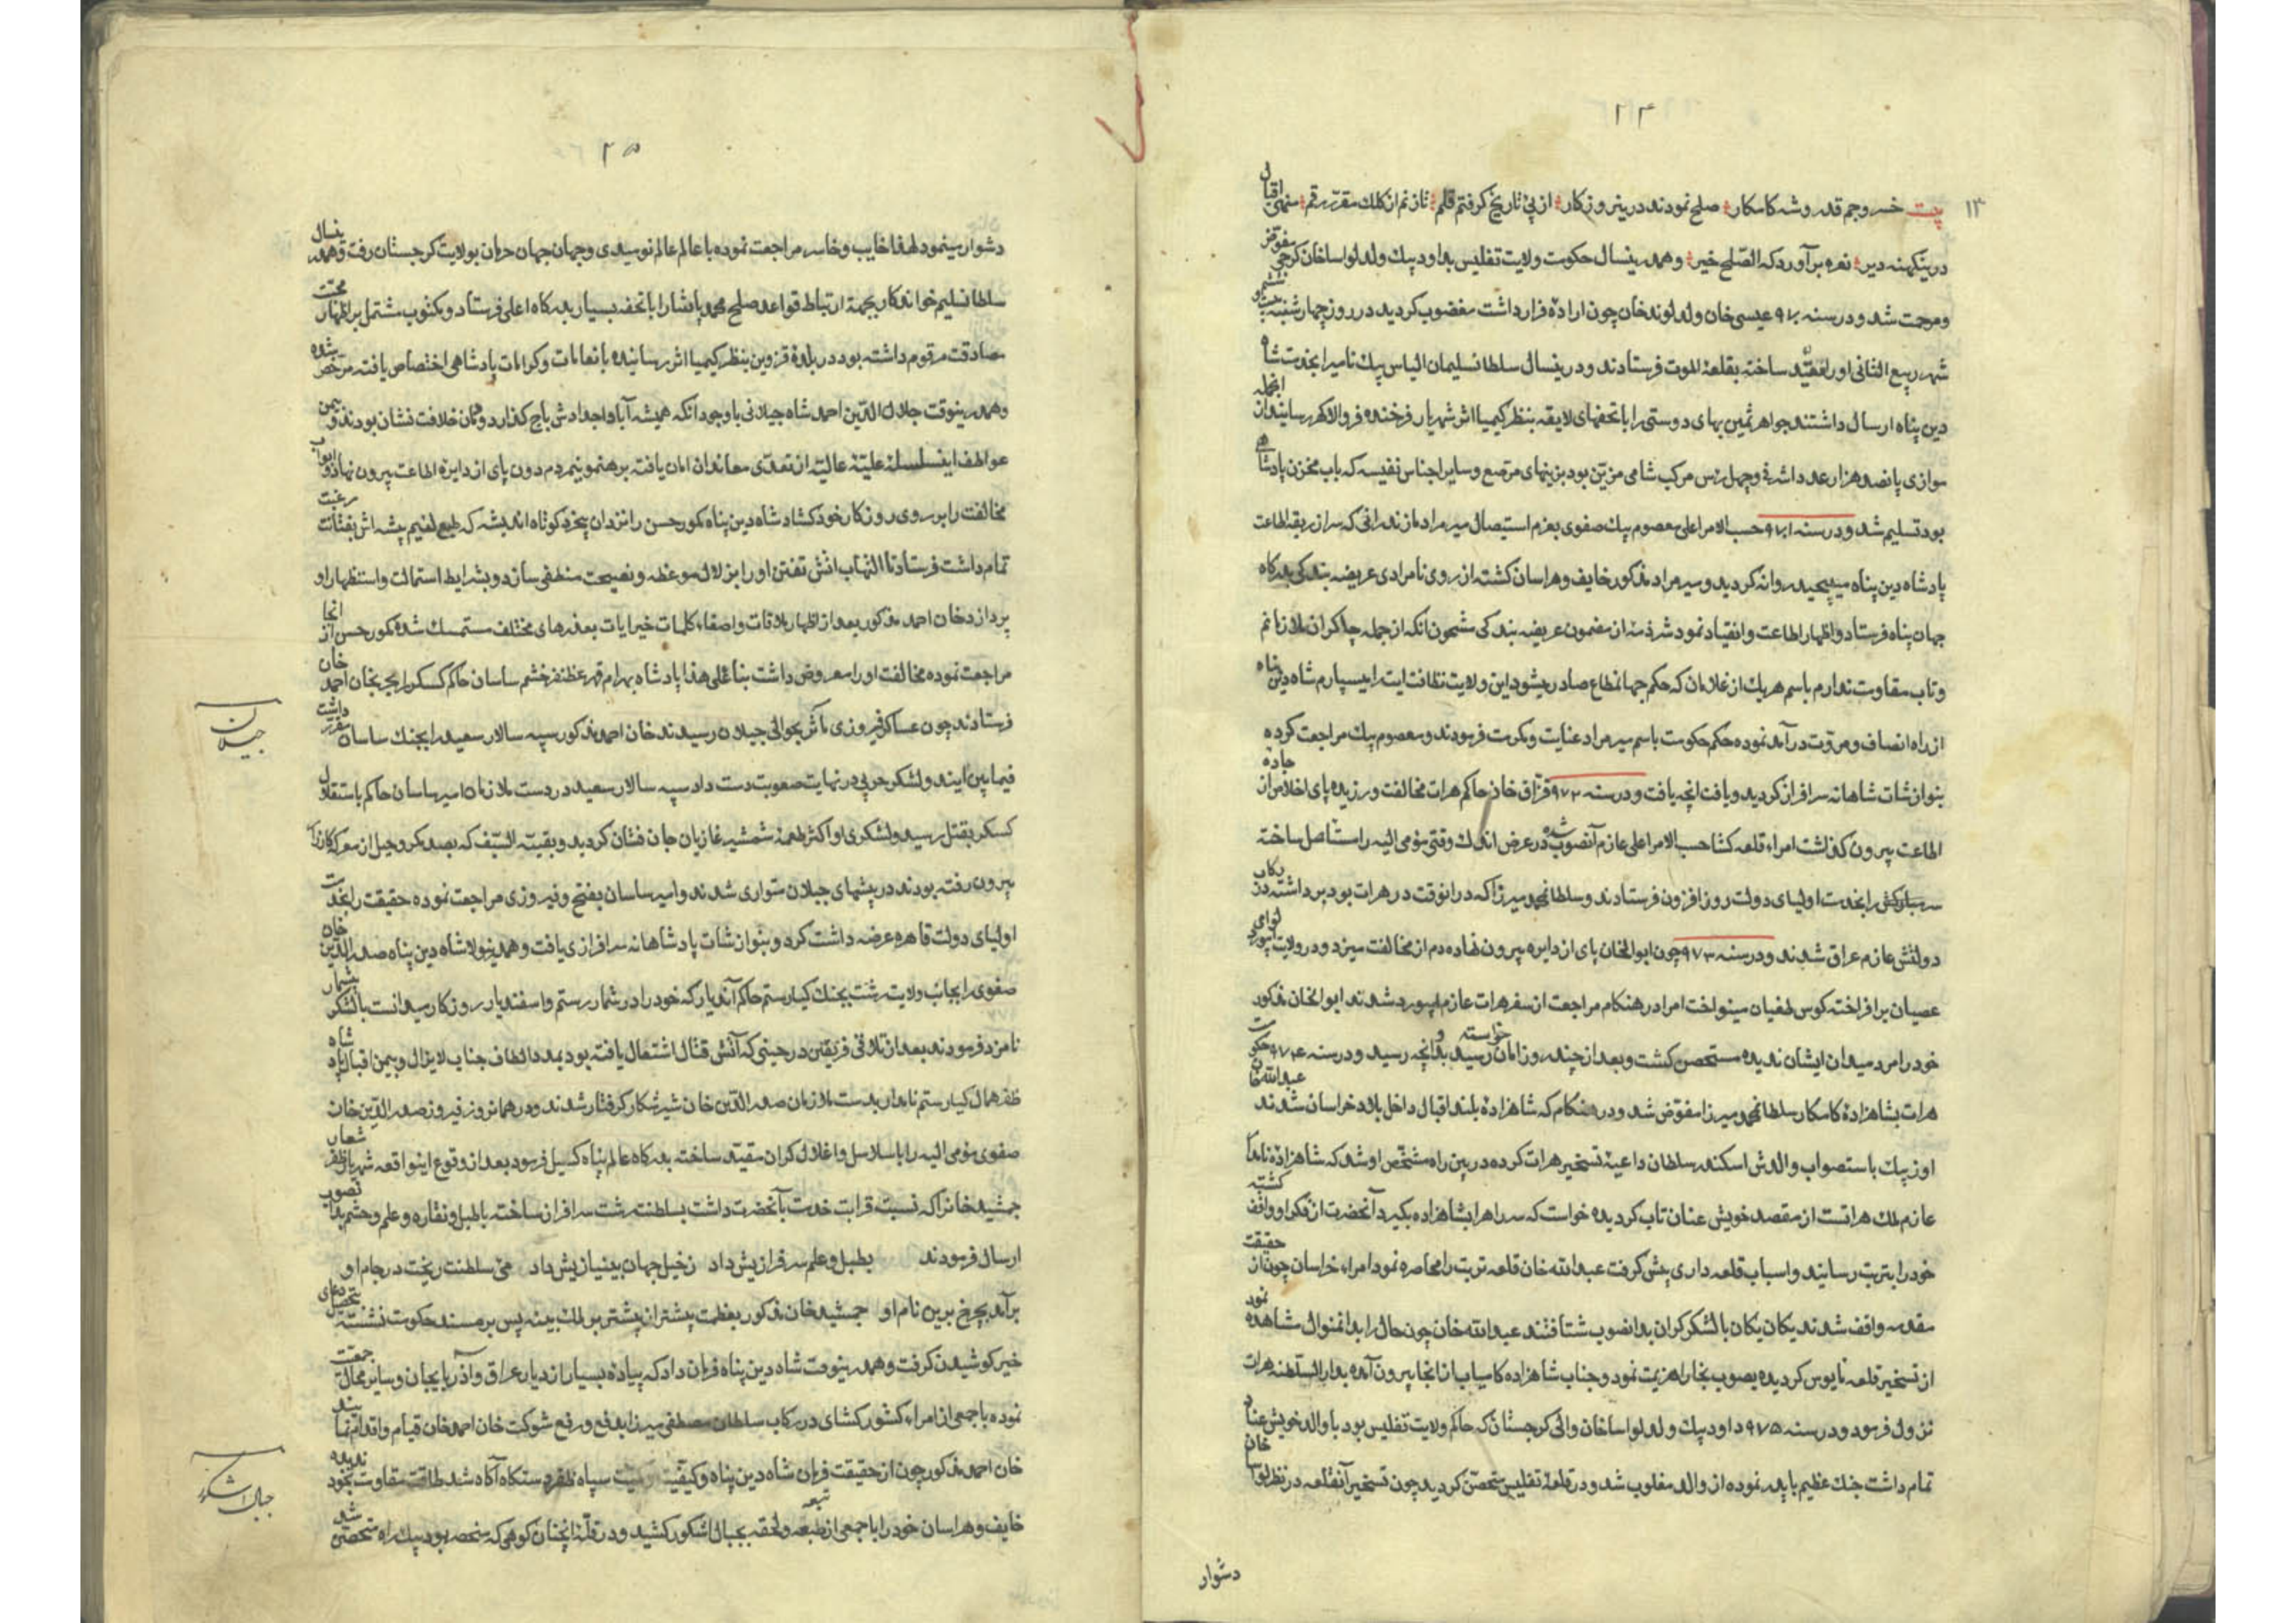 ۲۴
۱۳
بیت خسرو جم قدر وشه کامکار صلح نمودند درین روزکار از پی تاریخ کرفتم قلم تا زنم از کلک مقرر رقم منهی اقبال
درینکهنه دیر نعره برآورد که الصلح خیر وهمدرینسال حکومت ولایت تفلیس بداود بیک ولد لواساخان کرجی مفوض
ومرجمت شد ودر سنه ۹۷۰ عیسی خان ولد لوندخان چون اراده فرار داشت مغضوب کردید در روز چهارشنبه بیست ششم
شهر ربیع الثانی اورا مقید ساخته بقلعه الموت فرستادند ودرینسال سلطان سلیمان الیاس بیک نامیرا بخدمت شاه
دین پناه ارسال داشتند جواهر ثمین بهای دوستی را با تحفهای لایقه بنظر کیمیا اثر شهریار فرخنده فر والاکهر رسانیدند از انجمله
موازی پانصد هزار عدد اشرفی وچهل رٔس مرکب شامی مزین بود بزینهای مرصع وسایر اجناس نفیسه که باب مخزن پادشاهی
بود تسلیم شد ودر سنه ۹۷۱ حسب الامر اعلی معصوم بیک صفوی بعزم استیصال میر مراد مازندرانی که سر از ربقه اطاعت
پادشاه دین پناه میپیچید روانه کردید ومیر مراد مذکور خایف وهراسان کشته از روی نامرادی عریضه بندکی بدرکاه
جهان پناه فرستاد واظهار اطاعت وانقیاد نمود شرذمه از مضمون عریضه بندکی مشحون انکه از جمله چاکران ملازمانم
وتاب مقاومت ندارم باسم هریک از غلامان که حکم جهانمطاع صادر میشود این ولایت نظافت ایت را میسپارم شاه دین پناه
از راه انصاف ومروت درآمد نموده حکم حکومت باسم میر مراد عنایت ومکرمت فرمودند ومعصوم بیک مراجعت کرده
بنوازشات شاهانه سرافراز کردید ویافت انچه یافت ودر سنه ۹۷۲ قزاق خان حاکم هرات مخالفت ورزیده پای اخلاص از جاده
اطاعت بیرون کذاشت امراء قلعه کشا حسب الامر اعلی عازم آنصوب شده در عرض اندک وقتی مومی الیه را مستاصل ساخته
سر مبارکش را بخدمت اولیای دولت روزافزون فرستادند وسلطانمحمد میرزا که درانوقت در هرات بود برداشته در رکاب
دولتش عازم عراق شدند ودر سنه ۹۷۳ چون ابوالخان پای از دایره بیرون نهاده دم از مخالفت میزد ودر ولایت ابیورد لوای
عصیان برافراخته کوس طغیان مینواخت امرا در هنکام مراجعت از سفر هرات عازم ابیورد شدند ابوالخان مذکور
خود را مرد میدان ایشان ندیده متحصن کشت وبعد از چند روز امان خواسته رسید بدو انچه رسید ودر سنه ۹۷۴ حکومت
هرات بشاهزاده کامکار سلطانمحمد میرزا مفوض شد ودر هنکام که شاهزاده بلند اقبال داخل بلاد خراسان شدند عبدالله خان
اوزبیک باستصواب والدش اسکندر سلطان داعیه تسخیر هرات کرده در بین راه مشخص او شد که شاهزاده نامدار
عازم ملک هراتست از مقصد خویش عنان تاب کردیده خواست که سر راه را بشاهزاده بکیرد آنحضرت از فکر او واقف کشته
خود را بتربت رسانید واسباب قلعه داری پیش کرفت عبدالله خان قلعه تربت را محاصره نمود امراء خراسان چون از حقیقت
مقدمه واقف شدند یکان یکان با لشکر کران بدانصوب شتافتند عبدالله خان چون حال را بدانمنوال مشاهده نمود
از تسخیر قلعه مایوس کردیده بصوب بخارا هزیمت نمود وجناب شاهزاده کامیاب از انجا بیرون آمده بدار السلطنه هرات
نزول فرمود ودر سنه ۹۷۵ داود بیک ولد لواساخان والی کرجستان که حاکم ولایت تفلیس بود با والد خویش عناد
تمام داشت جنک عظیم با پدر نموده از والد مغلوب شد ودر قلعه تفلیس متحصن کردید چون تسخیر آنقلعه در نظر لواساخان
دشوار
۲۵
دشوار مینمود لهذا خایب وخاسر مراجعت نموده با عالم عالم نومیدی وجهان جهان حرمان بولایت کرجستان رفت وهمدرینسال
سلطان سلیم خواندکار بجهة ارتباط قواعد صلح محمد پاشا را با تحفه بسیار بدرکاه اعلی فرستاد ومکتوب مشتمل بر اظهار محبت
صادقت مرقوم داشته بود در بلده قزوین بنظر کیمیا اثر رسانیده بانعامات وکرامات پادشاهی اختصاص یافته مرخص شده
وهمدرینوقت جلال الدین احمد شاه جیلانی باوجود انکه همیشه آبا واجدادش باج کذار دودمان خلافت نشان بودند وبیمن
عواطف اینسلسله علیه عالیه از تعدی معاندان امان یافته برهنمونی مردم دون پای از دایره اطاعت بیرون نهاد وابواب
مخالفت را بر روی روزکار خود کشاد شاه دین پناه کور حسن را نزد ان بیخرد کوتاه اندیشه که طبع لئیم پیشه اش بفتنات رغبت
تمام داشت فرستاد تا التهاب اتش تفتن او را بزلال موعظه ونصیحت منطفی سازد وبشرایط استمالت واستظهار او
پردازد خان احمد مذکور بعد از اظهار ملاقات واصغاء کلمات خیر ایات بعذرهای مختلف متمسک شده کور حسن از انجا
مراجعت نموده مخالفت او را معروض داشت بناء علی هذا پادشاه بهرام قهر غظنفر خشم ساسان حاکم کسکر را بحرب خان احمد خان
فرستادند چون عساکر فیروزی مآثر بحوالی جیلان رسیدند خان احمد مذکور سپه سالار سعید را بجنک ساسان مقرر داشت
جیلان
فیمابین ایند ولشکر حربی در نهایت صعوبت دست داد سپه سالار سعید در دست ملازمان امیر ساسان حاکم باستقلال
کسکر بقتل رسید ولشکری او اکثر طعمه شمشیر غازیان جان فشان کردید وبقیه السیف که بصد مکر وحیل از معرکه کارزار
بیرون رفته بودند در بیشهای جیلان متواری شدند وامیر ساسان بفتح وفیروزی مراجعت نموده حقیقت را بخدمت
اولیای دولت قاهره عرضه داشت کرد وبنوازشات پادشاهانه سرافرازی یافت وهمدرینولا شاه دین پناه صدر الدین خان
صفوی را بجانب ولایت رشت بجنک کیا رستم حاکم آندیار که خود را در شمار رستم واسفندیار روزکار میدانست با لشکر بیشمار
نامزد فرمودند بعد از تلاقی فریقین در حینی که آتش قتال اشتعال یافته بود بمدد الطاف جناب لایزال وبیمن اقبال پادشاه
ظفر همال کیا رستم نامدار بدست ملازمان صدر الدین خان شیر شکار کرفتار شدند ودر همانروز فیروز صدر الدین خان
صفوی مومی الیه را باسلاسل واغلال کران مقید ساخته بدرکاه عالم پناه کسیل فرمود بعد از وقوع اینواقعه شهریار ظفر شعار
جمشید خانرا که نسبت قرابت خدمت بآنحضرت داشت بسلطنت رشت سرافراز ساخته با طبل ونقاره وعلم وحشم بدانصوب
ارسال فرمودند بطبل وعلم سرفرازیش داد زخیل جهان بینیازیش داد می سلطنت ریخت در جام او
برآمد بچرخ برین نام او جمشید خان مذکور بعظمت بیشتر از پیشتر بر ملک بیه پس بر مسند حکومت نشسته بتحصیل دعای
خیر کوشیدن کرفت وهمدرینوقت شاه دین پناه فرمان داد که پیاده بسیار از دیار عراق وآذربایجان وسایر محال جمعیت
نموده با جمعی از امراء کشورکشای در رکاب سلطان مصطفی میرزا بدفع ورفع شوکت خان احمد خان قیام واقدام نمایند
خان احمد مذکور چون از حقیقت فرمان شاه دین پناه وکیفیت سپاه ظفر دستکاه آکاه شد طاقت مقاومت بخود ندیده
جبال اشکور
خایف وهراسان خود را با جمعی از تبعه ولحقه بجبال اشکور کشید ودر قله انچنان کوهی که منحصر بود بیک راه متحصن شد